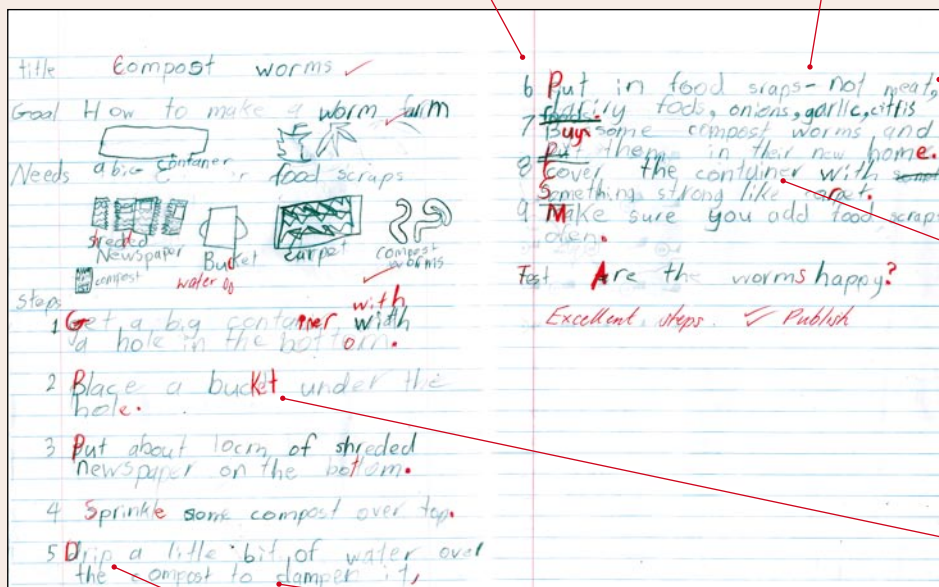 title Compost worms
Goal How to make a worm farm
Needs a big container food scraps
shredded
Newspaper Bucket carpet compost worms
compost water
Steps
with
1 Get a big container width
a hole in the bottom.
2 Place a bucket under the
hole.
3 Put about 10cm of shreded
newspaper on the bottom.
4 Sprinkle some compost over top.
5 Drip a little bit of water over
the compost to damper it,
6 Put in food sraps - not meat,
dairy fods, onions, garlic, citris
7 Buy some compost worms and
put them in their new home.
8 Cover the container with
Something strong like carpet.
9 Make sure you add food scraps
ofen.
Test Are the worms happy?
Excellent steps. Publish